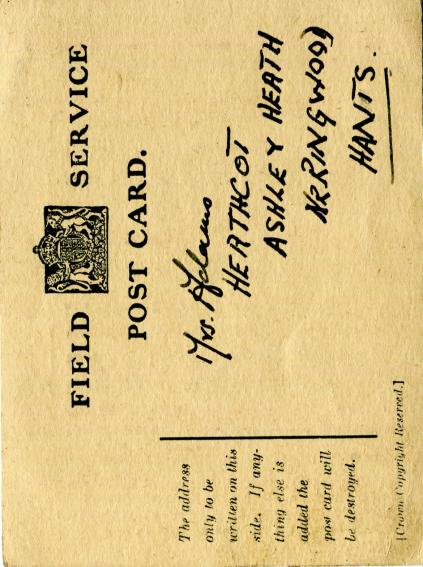 FIELD SERVICE
POST CARD.
The address
only to be
written on this
side. If any-
thing else is
added the
post card will
be destroyed.
Mrs. Adams
HEATHCOT
ASHLEY HEATH
Nr RINGWOOD
HANTS.
[Crown Copyright Reserved.]